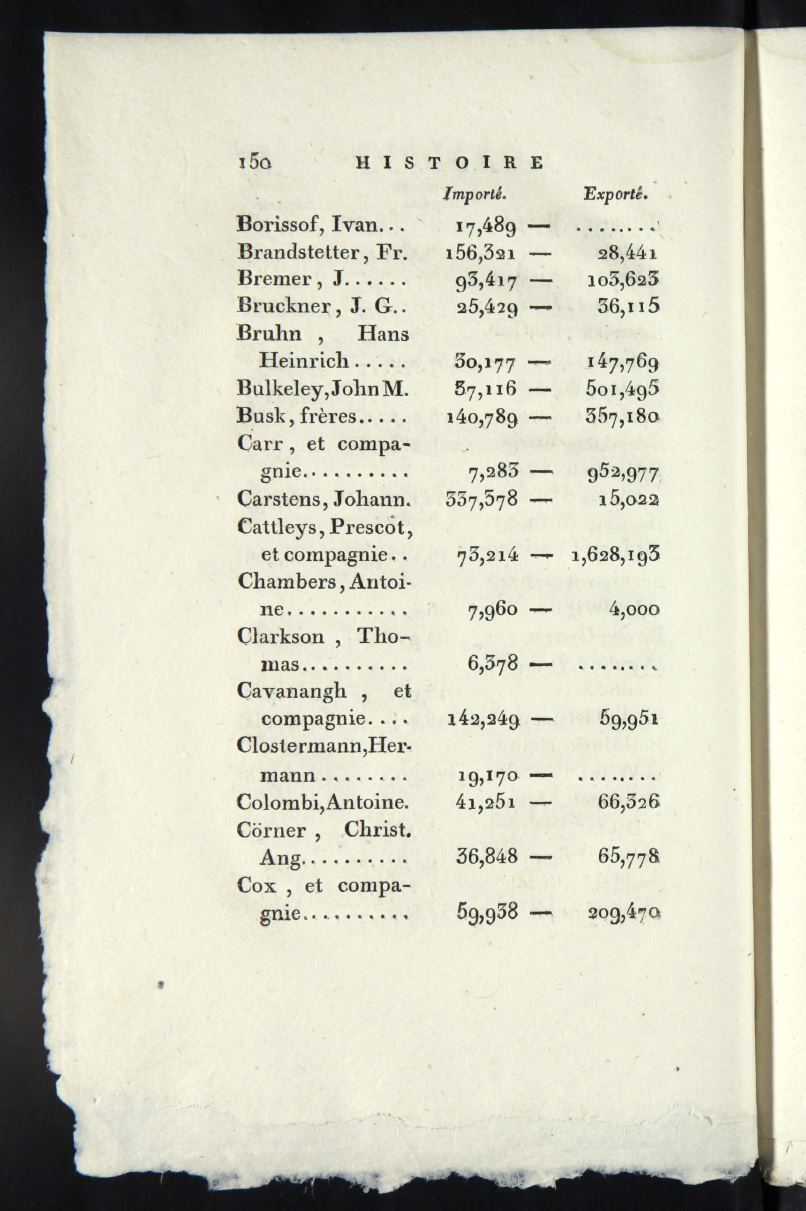 150 HISTOIRE
Importé. Exporté.
Borissof, Ivan... 17,489 — ........
Brandstetter, Fr. 156,321 — 28,441
Bremer, J...... 93,417 — 103,623
Bruckner, J. G.. 25,429 — 36,115
Bruhn , Hans
Heinrich..... 30,177 — 147,769
Bulkeley, John M. 37,116 — 501,495
Busk, frères..... 140,789 — 357,180
Carr, et compa-
gnie.......... 7,283 — 952,977
Carstens, Johann. 337,378 — 15,022
Cattleys, Prescot,
et compagnie.. 73,214 — 1,628,193
Chambers, Antoi-
ne........... 7,960 — 4,000
Clarkson , Tho-
mas.......... 6,378 — ........
Cavanangh , et
compagnie.... 142,249 — 59,951
Clostermann, Her-
mann........ 19,170 — ........
Colombi, Antoine. 41,251 — 66,326
Cörner , Christ.
Ang.......... 36,848 — 65,778
Cox , et compa-
gnie.......... 59,938 — 209,470